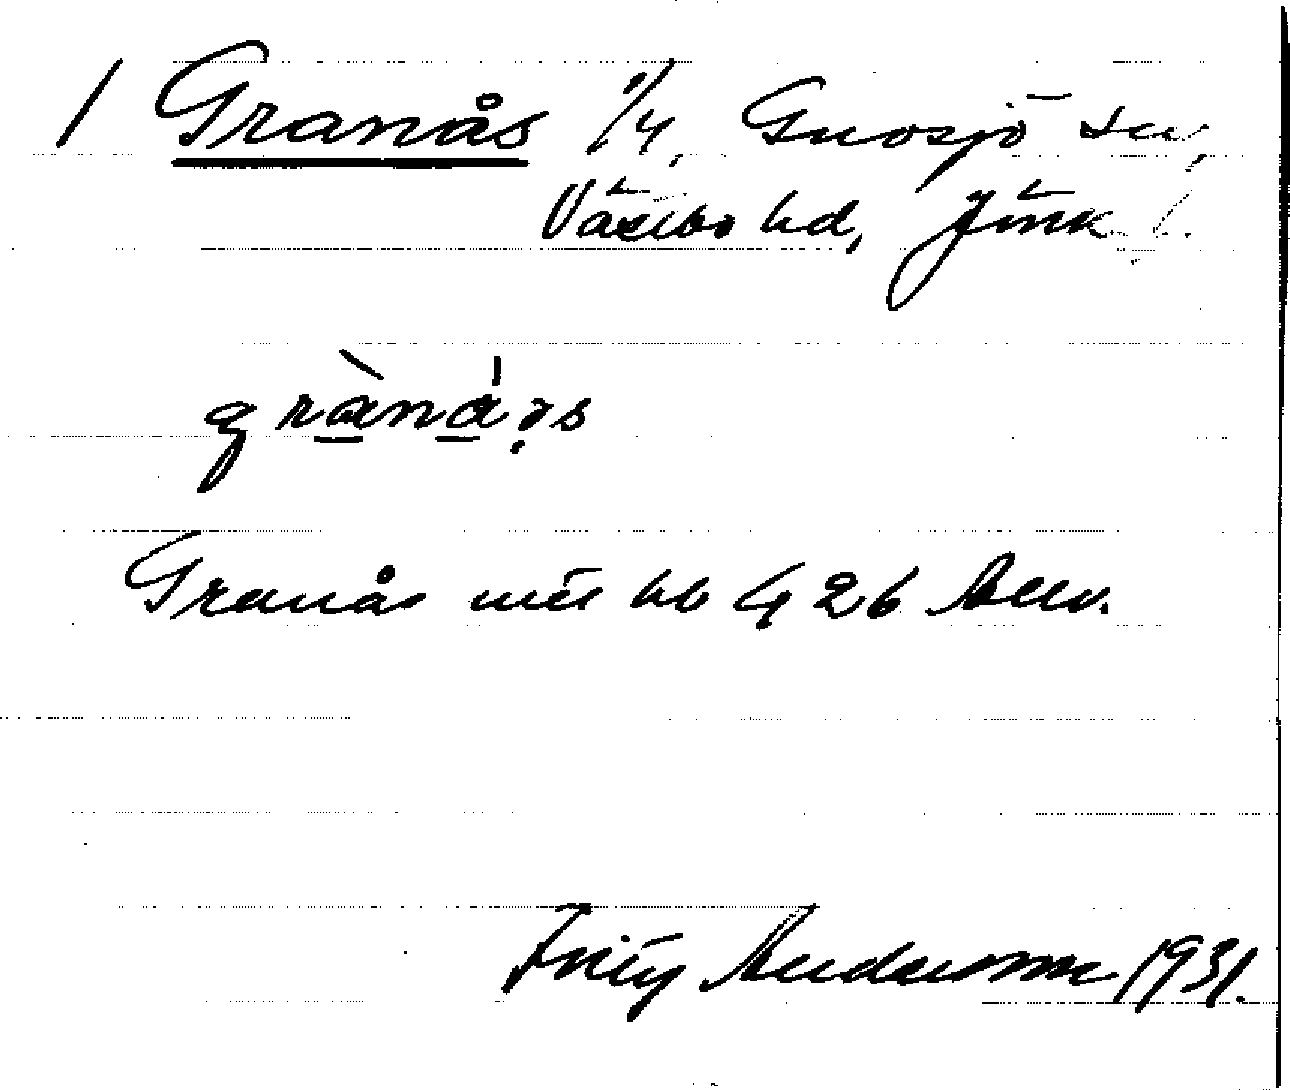 / Granås 1/4, Gnosjö sn,
Västbo hd, Jönk. l.
grànás
Granås mtl hb 426
Fritz Andersson 1931.